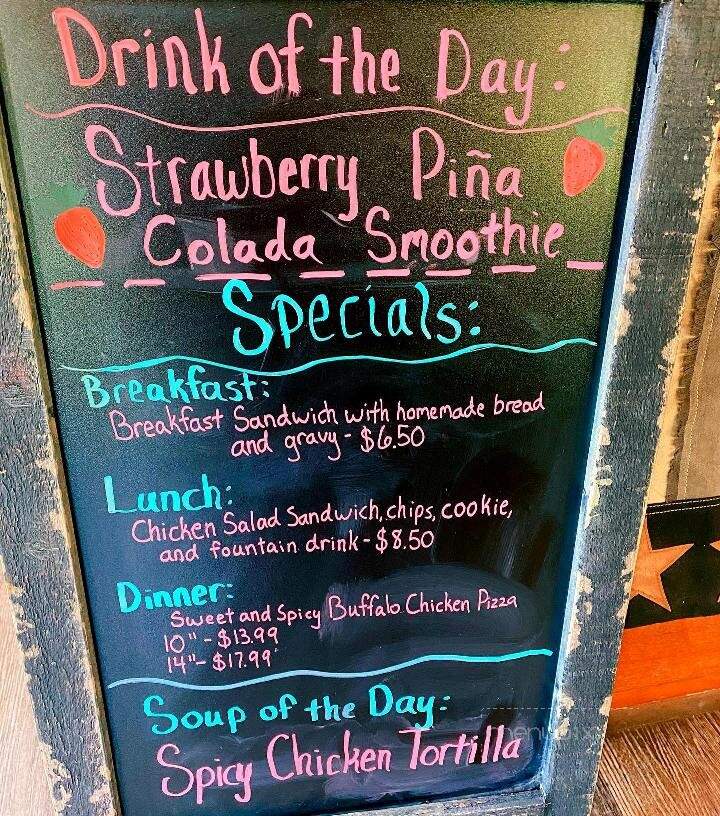 Drink of the Day:
Strawberry Piña
Colada Smoothie
Specials:
Breakfast:
Breakfast Sandwich with homemade bread
and gravy - $6.50
Lunch:
Chicken Salad Sandwich, chips, cookie,
and fountain drink - $8.50
Dinner:
Sweet and Spicy Buffalo Chicken Pizza
10" - $13.99
14" - $17.99
Soup of the Day:
Spicy Chicken Tortilla